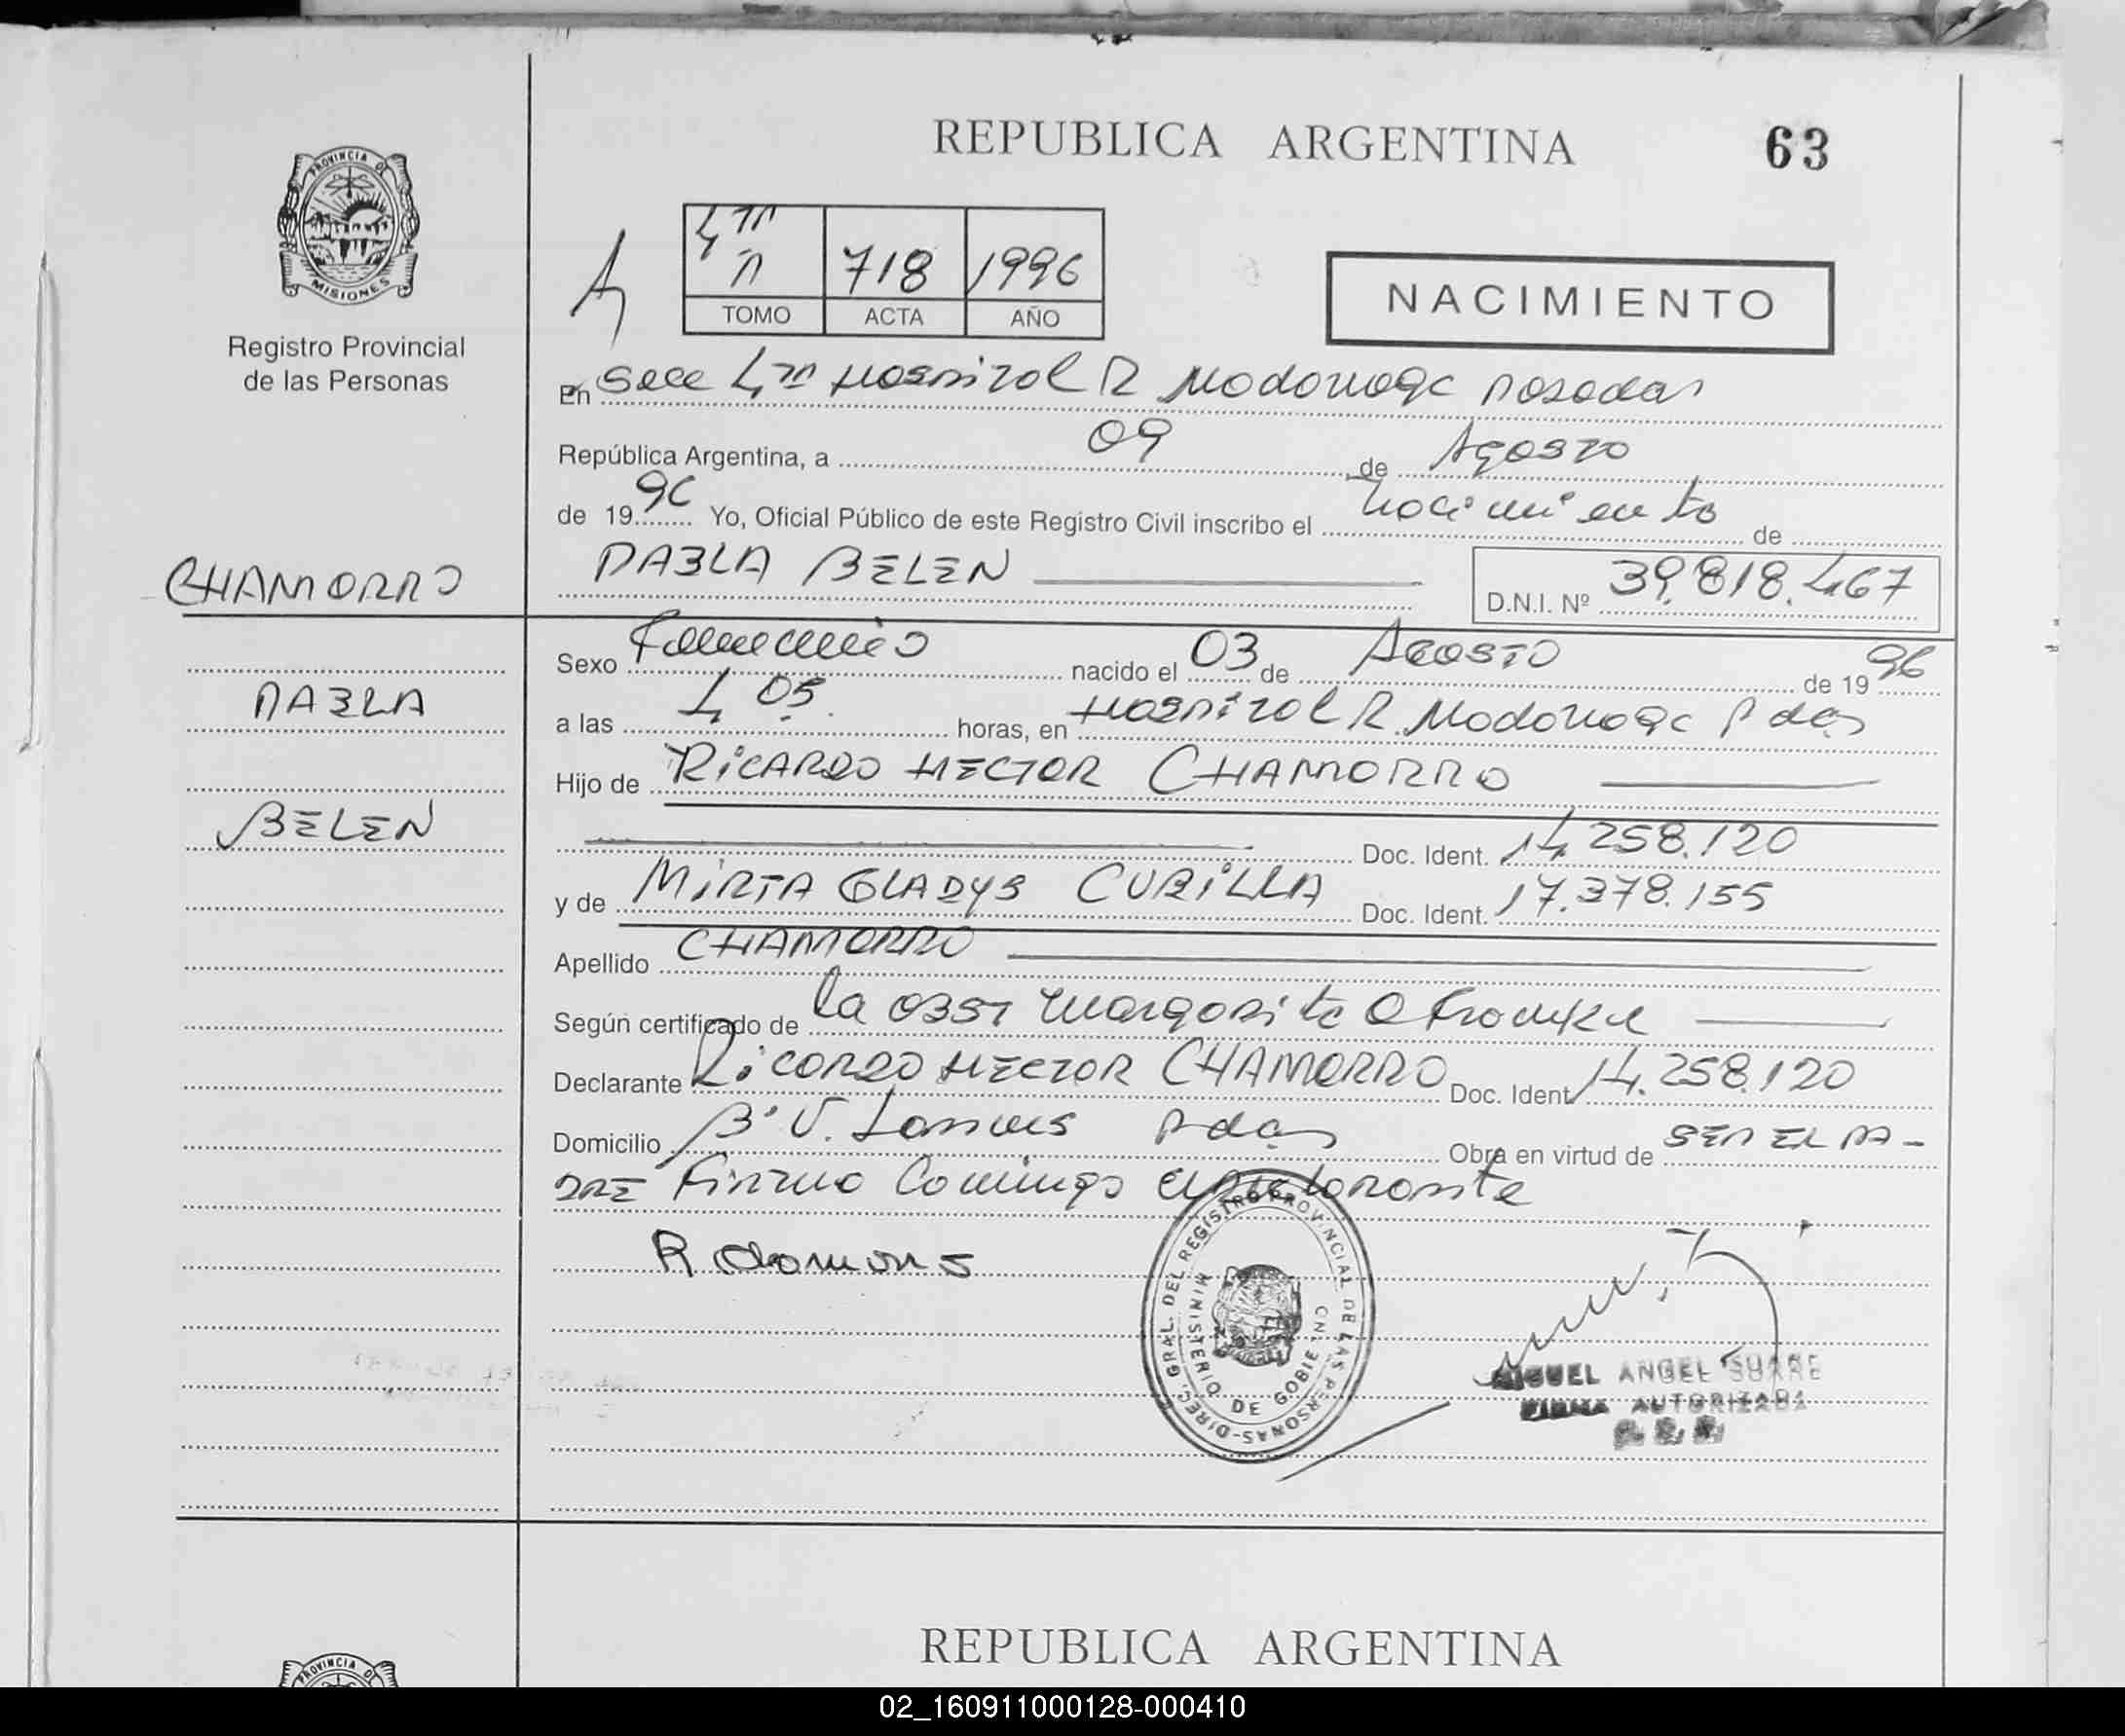 REPUBLICA ARGENTINA
63
PROVINCIA DE
MISIONES
Registro Provincial
de las Personas
4ta
718 1996
TOMO ACTA AÑO
NACIMIENTO
En Secc 4ta Hospital R Madariaga Posadas
República Argentina, a 09 de Agosto
de 1996 Yo, Oficial Público de este Registro Civil inscribo el nacimiento de
CHAMORRO
PABLA BELEN
D.N.I. Nº 39.818.467
Sexo Femenino nacido el 03 de AGOSTO de 1996
PABLA
a las 4 05 horas, en Hospital R. Madariaga Pdas
Hijo de RICARDO HECTOR CHAMORRO
BELEN
Doc. Ident. 14.258.120
y de MIRTA GLADYS CUBILLA Doc. Ident. 17.378.155
Apellido CHAMORRO
Según certificado de la OBST Margarita
Declarante Ricardo HECTOR CHAMORRO Doc. Ident. 14.258.120
Domicilio B° V. Pdas Obra en virtud de SER EL PA-
DRE Firma Conmigo el declarante
DIREC. GRAL. DEL REGISTRO PROVINCIAL DE LAS PERSONAS
MINISTERIO DE GOBIE
MIGUEL ANGEL SUARE
FIRMA AUTORIZADA
REPUBLICA ARGENTINA
PROVINCIA DE
02_160911000128-000410